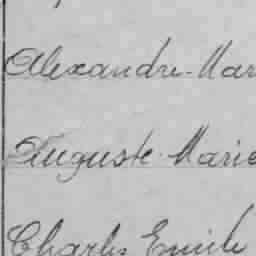 Alexandre Mar
Auguste Marie
Charles Emile